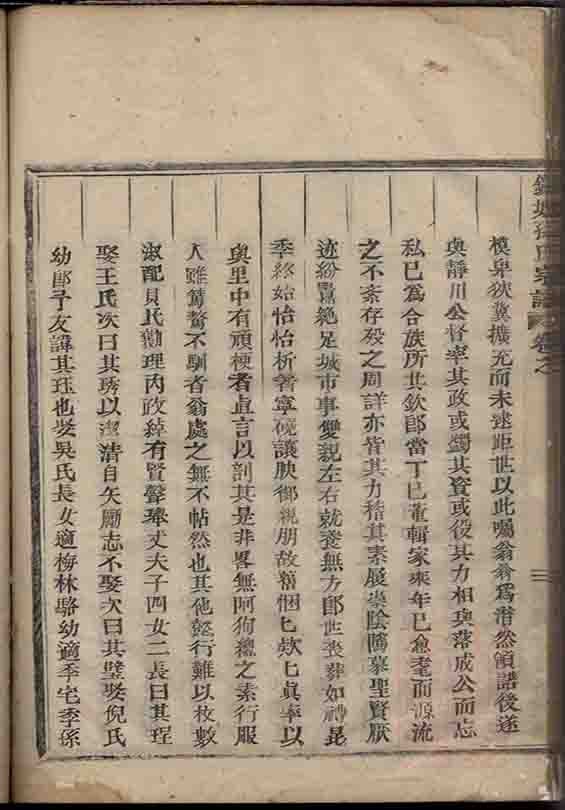 孫氏宗譜 卷之
模卑狹冀擴充而未遂距世以此囑翁翁爲潸然頷諾後遂
與靜川公督率其政或蠲其資或役其力相與落成公而忘
私已爲合族所共欽郎當丁巳董輯家乘年已愈耄而源流
之不紊存歿之周詳亦皆其力稽其素展崇陰騭慕聖賢厭
迹紛囂絶足城市事雙親左右就養無方郎世喪葬如禮昆
季終始怡怡析箸寧磽讓腴鄉親朋故精悃匕欵匕眞率以
與里中有頑梗者直言以剖其是非畧無阿狥總之素行服
人雖驁不馴者翁處之無不帖然也其他懿行難以枚數
淑配貝氏勤理內政綽有賢聲舉丈夫子四女二長曰其珵
娶王氏次曰其琇以潔清自矢勵志不娶次曰其璧娶倪氏
幼郎予友諱其珏也娶吳氏長女適梅林駱幼適季宅季孫